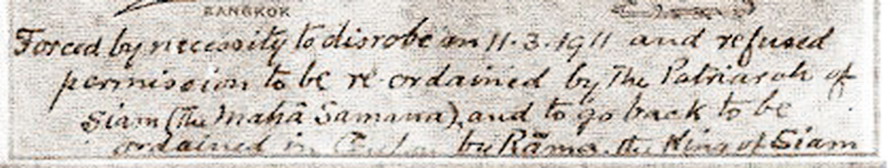 BANGKOK
Forced by necessity to disrobe on 11.3.1911 and refused
permission to be re-ordained by the Patriarch of
Siam (The Mahā Samana), and to go back to be
ordained in Ceylon by Rāma the King of Siam